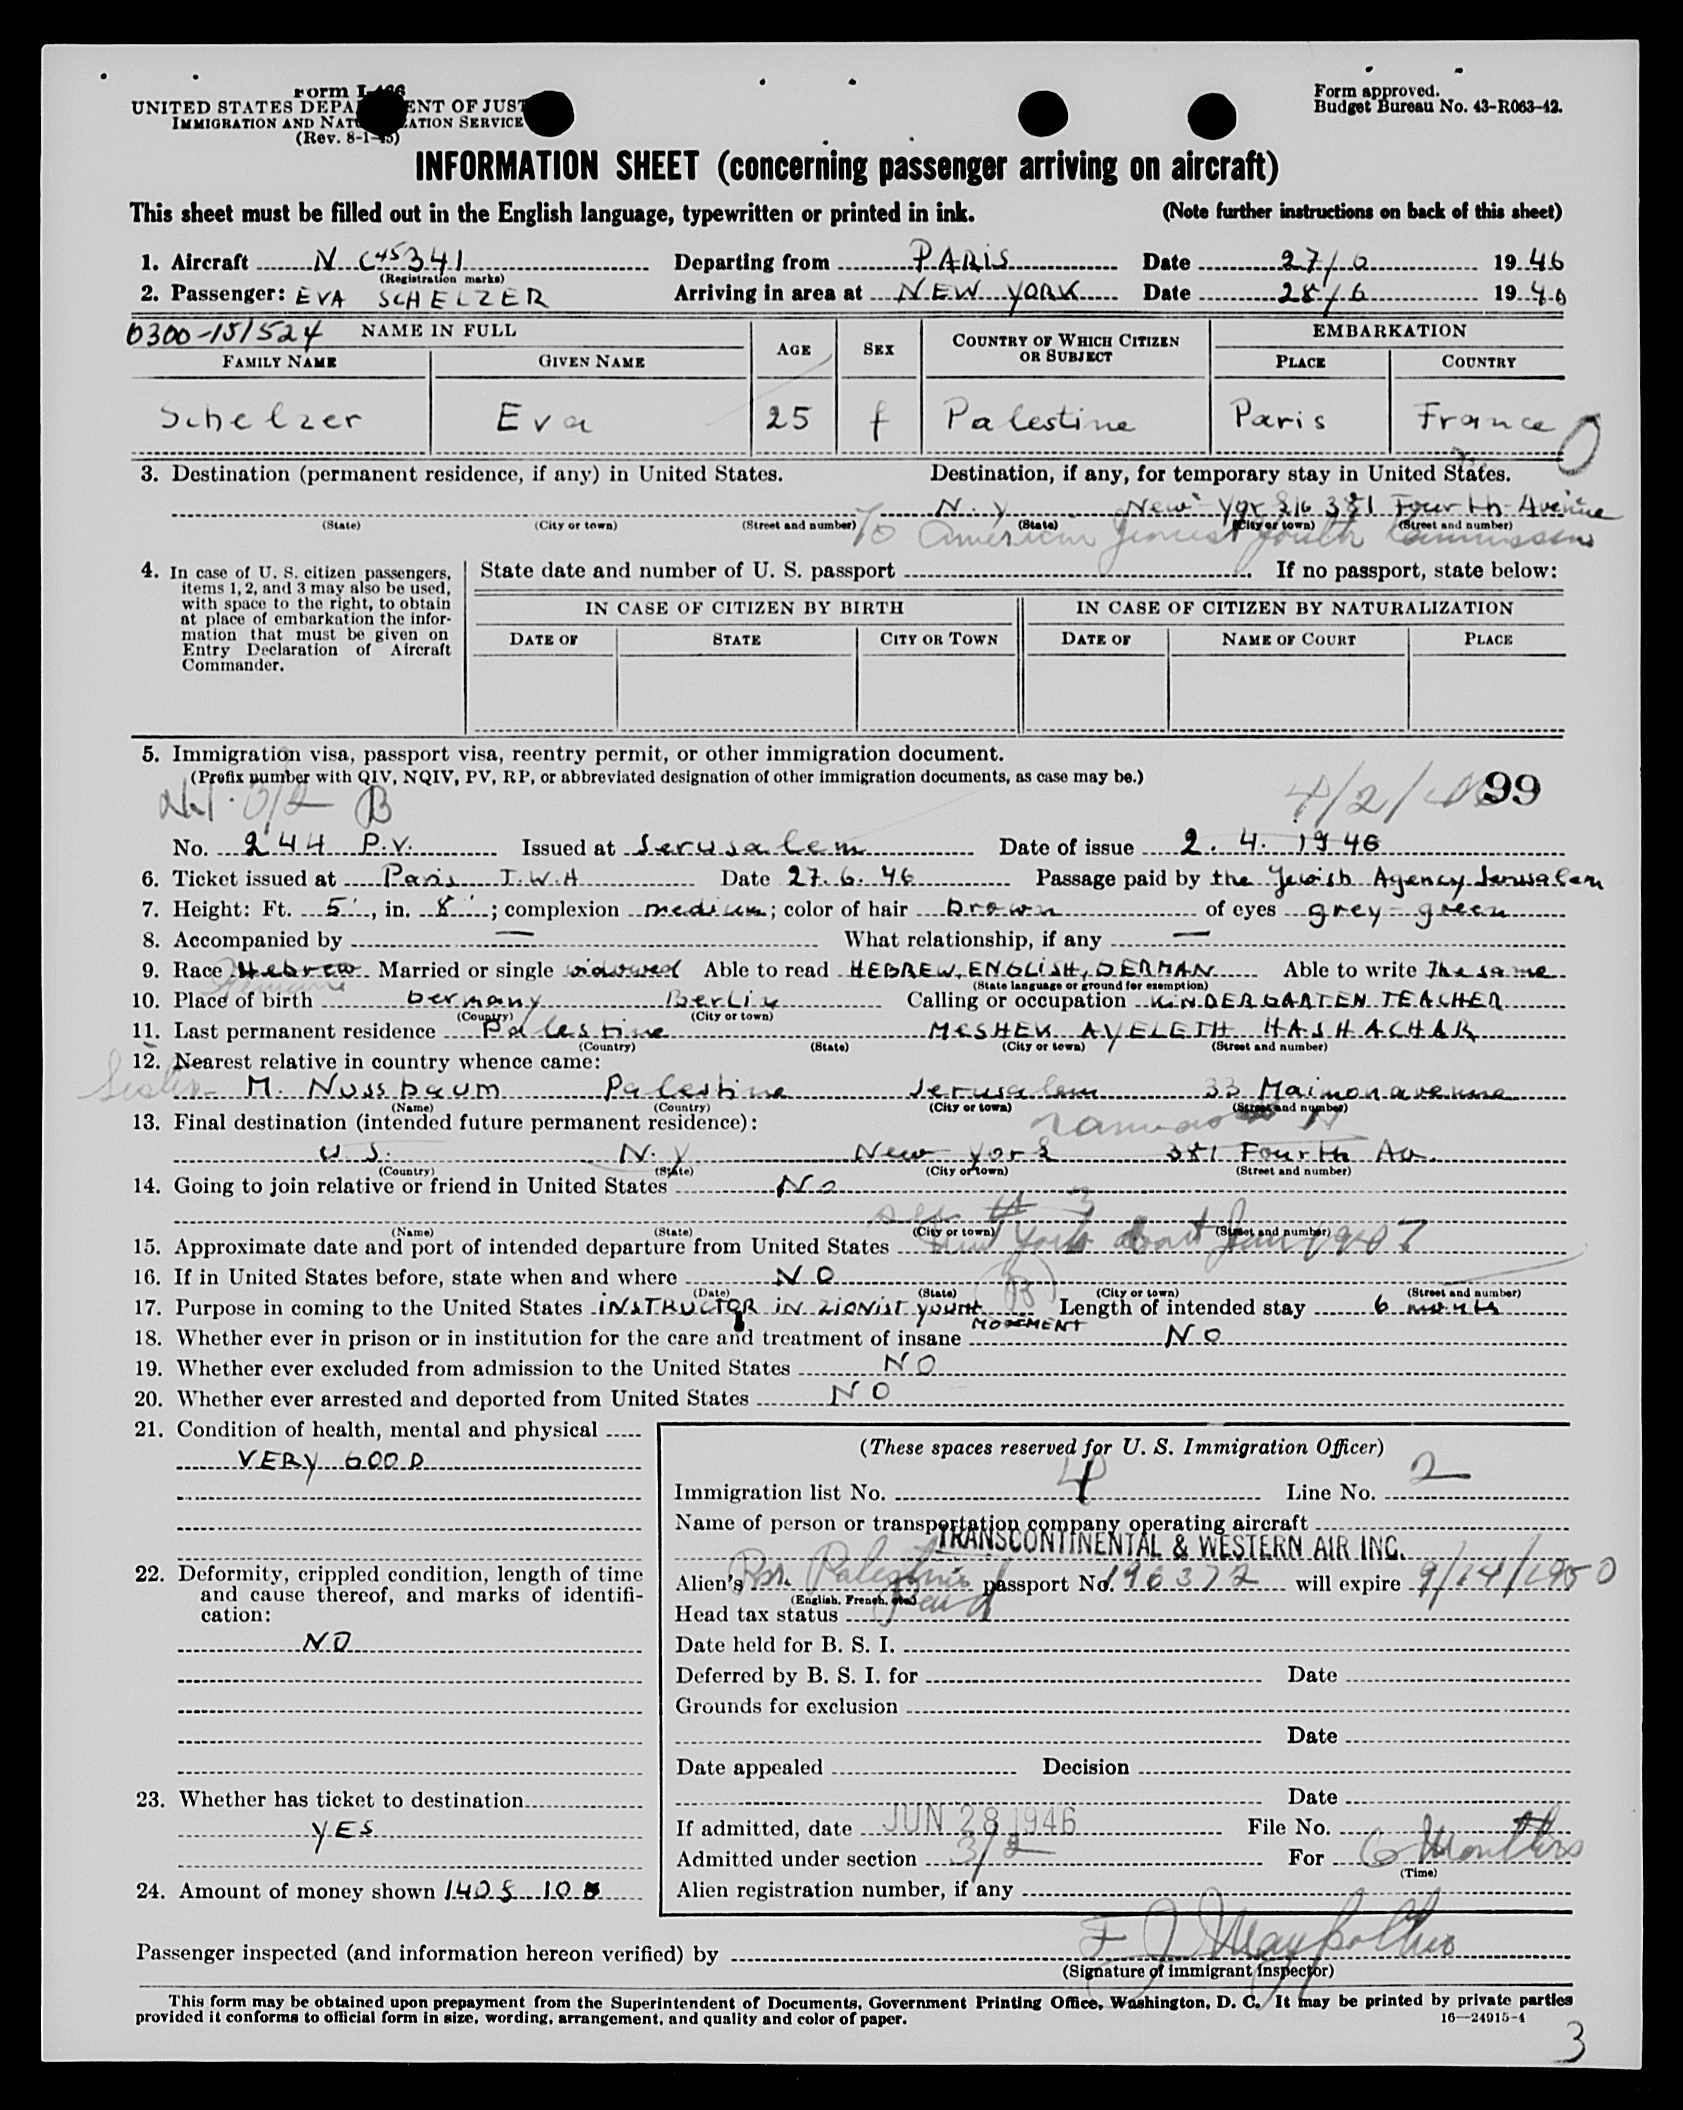 Form I-466
UNITED STATES DEPARTMENT OF JUSTICE
IMMIGRATION AND NATURALIZATION SERVICE
(Rev. 8-1-45)
Form approved.
Budget Bureau No. 43-R063-42.
INFORMATION SHEET (concerning passenger arriving on aircraft)
This sheet must be filled out in the English language, typewritten or printed in ink. (Note further instructions on back of this sheet)
1. Aircraft N C 45341 Departing from PARIS Date 27/6 1946
(Registration marks)
2. Passenger: EVA SCHELZER Arriving in area at NEW YORK Date 28/6 1946
0300-151524 NAME IN FULL AGE SEX COUNTRY OF WHICH CITIZEN OR SUBJECT EMBARKATION
FAMILY NAME GIVEN NAME PLACE COUNTRY
Schelzer Eva 25 f Palestine Paris France
3. Destination (permanent residence, if any) in United States. Destination, if any, for temporary stay in United States.
N.Y New-York 381 Fourth Avenue
(State) (City or town) (Street and number) (State) (City or town) (Street and number)
To American Jewish Youth Commission
4. In case of U. S. citizen passengers, items 1, 2, and 3 may also be used, with space to the right, to obtain at place of embarkation the information that must be given on Entry Declaration of Aircraft Commander.
State date and number of U. S. passport If no passport, state below:
IN CASE OF CITIZEN BY BIRTH IN CASE OF CITIZEN BY NATURALIZATION
DATE OF STATE CITY OR TOWN DATE OF NAME OF COURT PLACE
5. Immigration visa, passport visa, reentry permit, or other immigration document.
(Prefix number with QIV, NQIV, PV, RP, or abbreviated designation of other immigration documents, as case may be.)
3/2 B 4/2/46 99
No. 244 P.V. Issued at Jerusalem Date of issue 2. 4. 1946
6. Ticket issued at Paris T.W.A Date 27.6.46 Passage paid by the Jewish Agency Jerusalem
7. Height: Ft. 5', in. 8; complexion medium; color of hair brown of eyes grey-green
8. Accompanied by — What relationship, if any —
9. Race Hebrew Married or single widowed Able to read HEBREW, ENGLISH, GERMAN Able to write The same
(State language or ground for exemption)
10. Place of birth Germany Berlin Calling or occupation KINDERGARTEN TEACHER
(Country) (City or town)
11. Last permanent residence Palestine MESHEK AYELETH HASHACHAR
(Country) (State) (City or town) (Street and number)
12. Nearest relative in country whence came:
Sister- M. Nussbaum Palestine Jerusalem 33 Maimon avenue
(Name) (Country) (City or town) (Street and number)
13. Final destination (intended future permanent residence):
U S. N.Y New York 381 Fourth Av.
(Country) (State) (City or town) (Street and number)
14. Going to join relative or friend in United States No
see # 3
(Name) (State) (City or town) (Street and number)
15. Approximate date and port of intended departure from United States New York about Jan 1947
16. If in United States before, state when and where NO
(Date) (State) (City or town) (Street and number)
17. Purpose in coming to the United States INSTRUCTOR IN ZIONIST YOUTH MOVEMENT (B) Length of intended stay 6 months
18. Whether ever in prison or in institution for the care and treatment of insane NO
19. Whether ever excluded from admission to the United States NO
20. Whether ever arrested and deported from United States NO
21. Condition of health, mental and physical
VERY GOOD
22. Deformity, crippled condition, length of time and cause thereof, and marks of identification:
NO
23. Whether has ticket to destination
YES
24. Amount of money shown 140 $ 10
(These spaces reserved for U. S. Immigration Officer)
Immigration list No. 4 Line No. 2
Name of person or transportation company operating aircraft
TRANSCONTINENTAL & WESTERN AIR INC.
Alien's Palestine passport No. 196372 will expire 9/14/1950
(English, French, etc.)
Head tax status Paid
Date held for B. S. I.
Deferred by B. S. I. for Date
Grounds for exclusion
Date
Date appealed Decision
Date
If admitted, date JUN 28 1946 File No.
Admitted under section 3/2 For 6 Months
(Time)
Alien registration number, if any
Passenger inspected (and information hereon verified) by
(Signature of immigrant inspector)
This form may be obtained upon prepayment from the Superintendent of Documents, Government Printing Office, Washington, D. C. It may be printed by private parties
provided it conforms to official form in size, wording, arrangement, and quality and color of paper.
16—24915-4
3